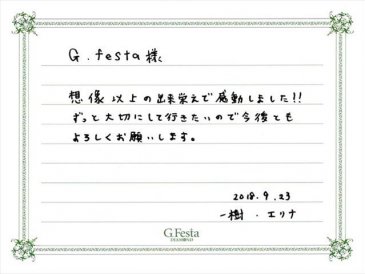 G.festa様
想像以上の出来栄えで感動しました!!
ずっと大切にして行きたいので今後とも
よろしくお願いします。
2018.9.23
一樹・エリナ
G.Festa
DIAMOND